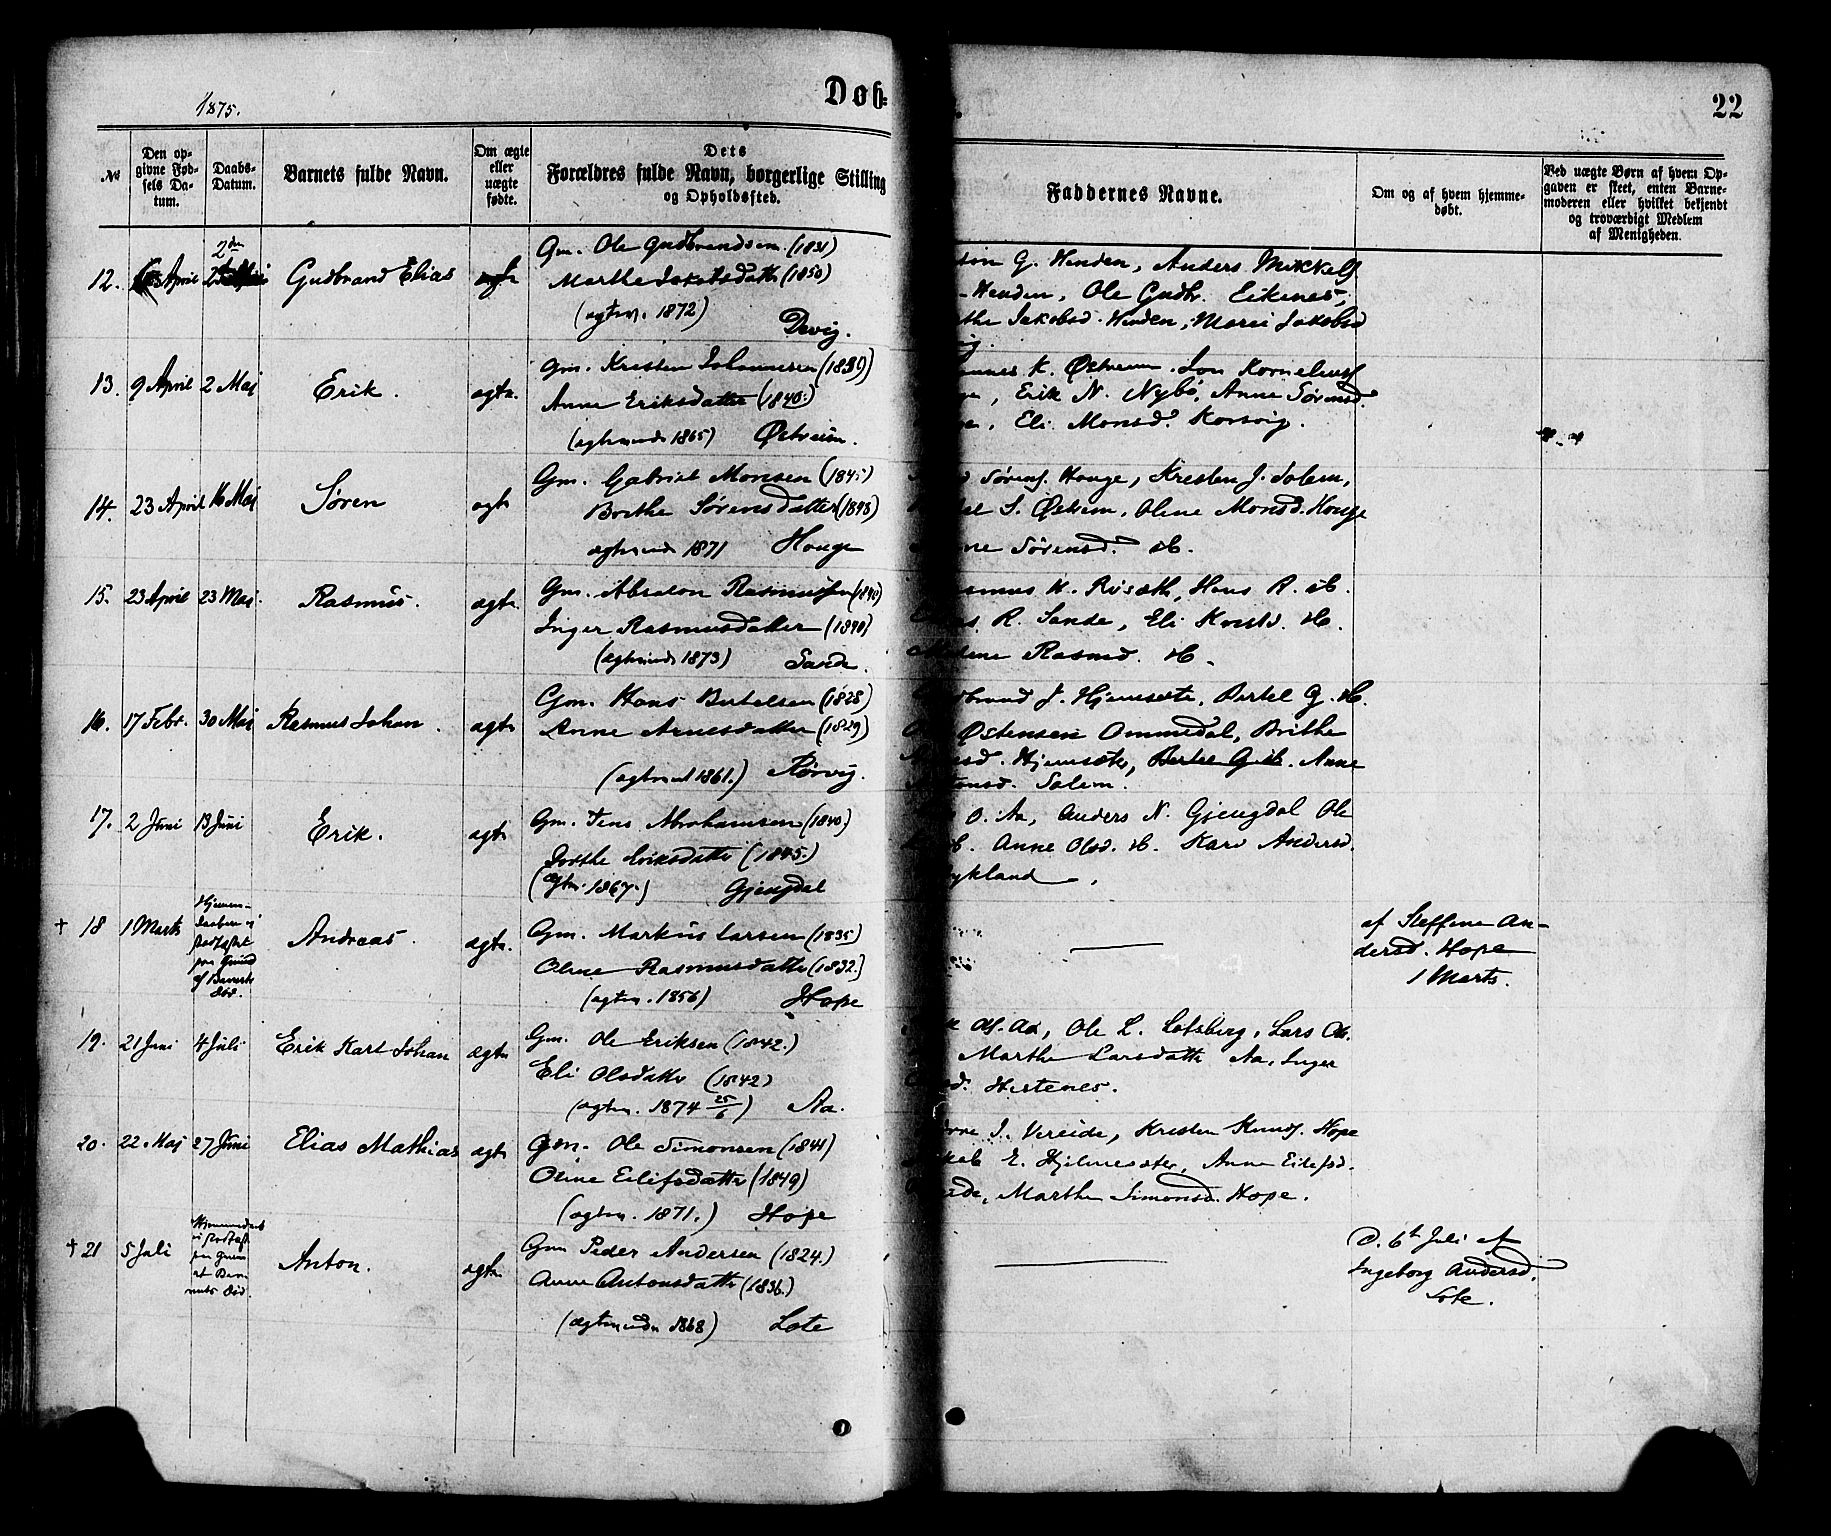 1875.
Døb=
22
№
Den op-
givne Fød-
sels Da-
tum.
Daabs-
Datum.
Barnets fulde Navn.
Om ægte
eller
uægte
fødte.
Dets
Forældres fulde Navn, borgerlige Stilling
og Opholdssted.
Faddernes Navne.
Om og af hvem hjemme-
døbt.
Ved uægte Børn af hvem Op-
gaven er skeet, enten Barne-
moderen eller hvilket bekjendt
og troværdigt Medlem
af Menigheden.
12. April 2den Gudbrand Elias ægte
Gm. Ole Gudbrandsen (1831)
Marthe Jakobsdatter (1850)
(ægtev. 1872) Devig.
G. Henden, Anders Mikkels
Henden, Ole Gudbr. Eikenes,
Jakobsd. Henden, Marie Jakobsd
13. 9 April 2 Maj Erik. ægte.
Gm. Kristen Johannesen (1839)
Anne Eriksdatter (1840.)
(ægtevied 1865) Østreim.
K. Østreim. Jon Kornelius
Erik N. Nybø, Anne Sørensd.
Eli Monsd. Korsvig.
14. 23 April 16 Maj Søren ægte
Gm. Gabriel Monsen (1845)
Berthe Sørensdatter (1848)
ægtevied 1871 Houge
Sørens. Houge, Kresten J. Solem,
S. Østreim, Oline Monsd. Houge
Sørensd. ib.
15. 23 April 23 Maj. Rasmus. ægte.
Gm. Absalon Rasmussen (1840)
Inger Rasmusdatter (1840)
(ægtevied 1873) Sande.
K. Risæth, Hans R. ib.
R. Sande, Eli Kristd. ib.
Rasmd. ib.
16. 17 Febr. 30 Maj Rasmus Johan. ægte
Gm. Hans Bertelsen (1828)
Anne Arnesdatter (1829)
(ægtevied 1861.) Rørvig.
J. Hjemsæter, Bertel G. ib.
Østensen Ommedal, Brithe
Hjemsæter, Bertel G. ib. Anne
Solem.
17. 2 Juni 13 Juni Erik. ægte
Gm. Jens Abrahamsen (1840)
Dorthe Eriksdatter (1845.)
(ægtev. 1867.) Gjengdal
O. Aa, Anders N. Gjengdal Ole
Anne Olsd. ib. Kari Andersd.
Mykland.
† 18 1 Marts
Hjemme-
daaben ej
stadfæstet
paa Grund
af Barnets
Død.
Andreas. ægte.
Gm. Markus Larsen (1835)
Oline Rasmusdatter (1832.)
(ægtev. 1856) Hope
af Steffine An-
dersd. Hope
1 Marts.
19. 21 Juni 4 Juli Erik Karl Johan ægte
Gm. Ole Eriksen (1842.)
Eli Olsdatter (1842)
(ægtev. 1874 25/6) Aa.
Aa, Ole L. Lotsberg, Lars Ol.
Marthe Larsdatter Aa, Inger
Hestenes.
20. 22 Maj 27 Juni Elias Mathias ægte
Gm. Ole Simonsen (1841)
Oline Eilifsdatter (1849)
(ægtev. 1871.) Hope
J. Vereide, Kristen Knuds. Hope
E. Hjelmesæter, Anne Eilefsd.
Marthe Simonsd. Hope.
† 21 5 Juli
Hjemmedaab
ej stadfæst.
paa Grund
af Bar-
nets Død.
Anton. ægte
Gm Peder Andersen (1824.)
Anne Antonsdatter (1836.)
(ægtevied 1868) Lote
D. 6te Juli af
Ingeborg Andersd.
Lote.